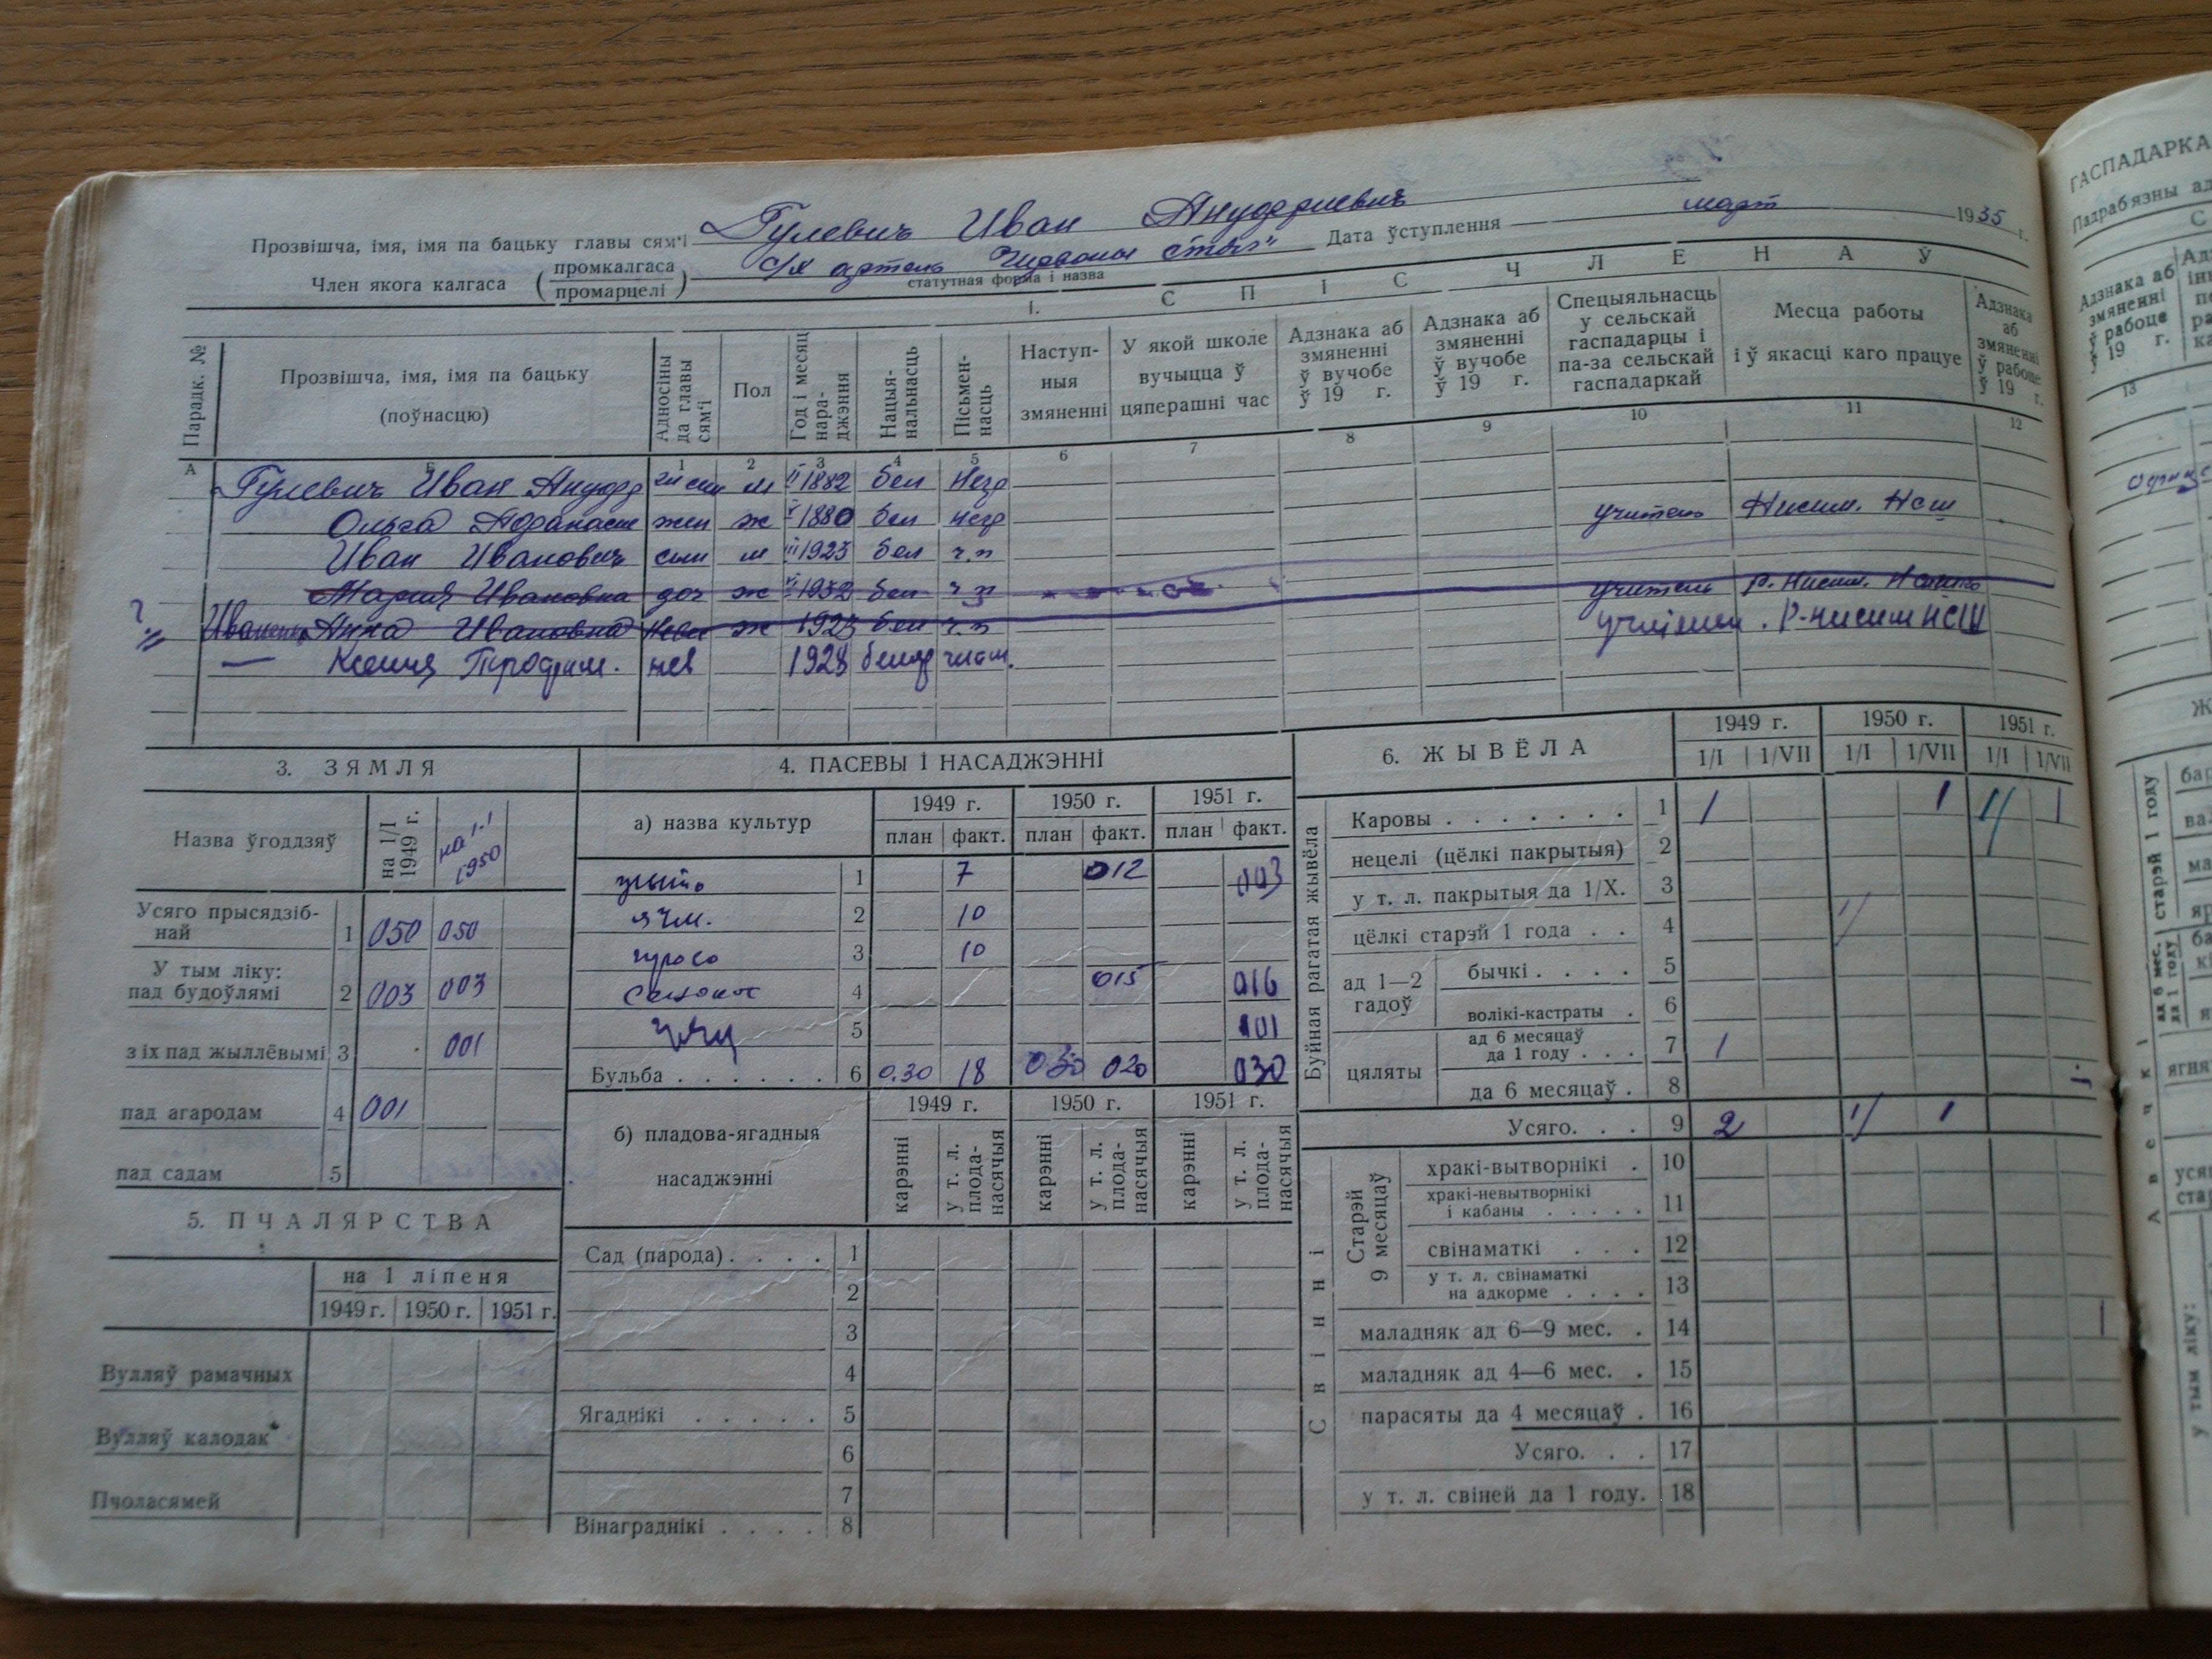 Прозвішча, імя, імя па бацьку главы сям'і Гулевич Иван Ануфриевич
Дата ўступлення март 1935 г.
Член якога калгаса (промкалгаса промарцелі) с/х артель
статутная форма і назва
1. СПІС ЧЛЕНАЎ
Парадк. №
Прозвішча, імя, імя па бацьку (поўнасцю)
Адносіны да главы сям'і
Пол
Год і месяц нараджэння
Нацыянальнасць
Пісьменнасць
Наступныя змяненні
У якой школе вучыцца ў цяперашні час
Адзнака аб змяненні ў вучобе ў 19 г.
Адзнака аб змяненні ў вучобе ў 19 г.
Спецыяльнасць у сельскай гаспадарцы і па-за сельскай гаспадаркай
Месца работы і ў якасці каго працуе
Адзнака аб змяненні ў рабоце ў 19 г.
А Б 1 2 3 4 5 6 7 8 9 10 11 12
Гулевич Иван Ануфр м 1882 бел негр
Ольга жен ж 1880 бел негр учитель Нисим. Нсш
Иван Иванович сын м III 1923 бел ч.п
Мария Ивановна доч ж 1932 бел ч.п учитель Р. Нисим.
Анна Ивановна ж бел ч.п Р-нисим НСШ
— Ксения нев 1928
3. ЗЯМЛЯ
Назва ўгоддзяў на 1/I 1949 г. на 1-1 1950
Усяго прысядзібнай 1 050 050
У тым ліку:
пад будоўлямі 2 003 003
з іх пад жыллёвымі 3 001
пад агародам 4 001
пад садам 5
5. ПЧАЛЯРСТВА
на 1 ліпеня
1949 г. 1950 г. 1951 г.
Вулляў рамачных
Вулляў калодак
Пчоласямей
4. ПАСЕВЫ І НАСАДЖЭННІ
а) назва культур
1949 г. 1950 г. 1951 г.
план факт. план факт. план факт.
жыто 1 7 012 003
ячм. 2 10
просо 3 10
4 015 016
5 101
Бульба 6 0.30 18 020 030
б) пладова-ягадныя насаджэнні
1949 г. 1950 г. 1951 г.
карэнні у т. л. пладанасячыя карэнні у т. л. пладанасячыя карэнні у т. л. пладанасячыя
Сад (парода) 1
2
3
4
Ягаднікі 5
6
7
Вінаграднікі 8
6. ЖЫВЁЛА
1949 г. 1950 г. 1951 г.
1/I 1/VII 1/I 1/VII 1/I 1/VII
Буйная рагатая жывёла
Каровы 1 1 1 1/ 1
нецелі (цёлкі пакрытыя) 2
у т. л. пакрытыя да 1/X. 3
цёлкі старэй 1 года 4 1/
ад 1—2 гадоў
бычкі 5
волікі-кастраты 6
цяляты
ад 6 месяцаў да 1 году 7 1
да 6 месяцаў 8
Усяго 9 2 1/ 1
Свінні
Старэй 9 месяцаў
хракі-вытворнікі 10
хракі-невытворнікі і кабаны 11
свінаматкі 12
у т. л. свінаматкі на адкорме 13
маладняк ад 6—9 мес. 14 1
маладняк ад 4—6 мес. 15
парасяты да 4 месяцаў 16
Усяго 17
у т. л. свіней да 1 году. 18
ГАСПАДАРКА
Адзнака аб змяненні ў рабоце ў 19 г.
13